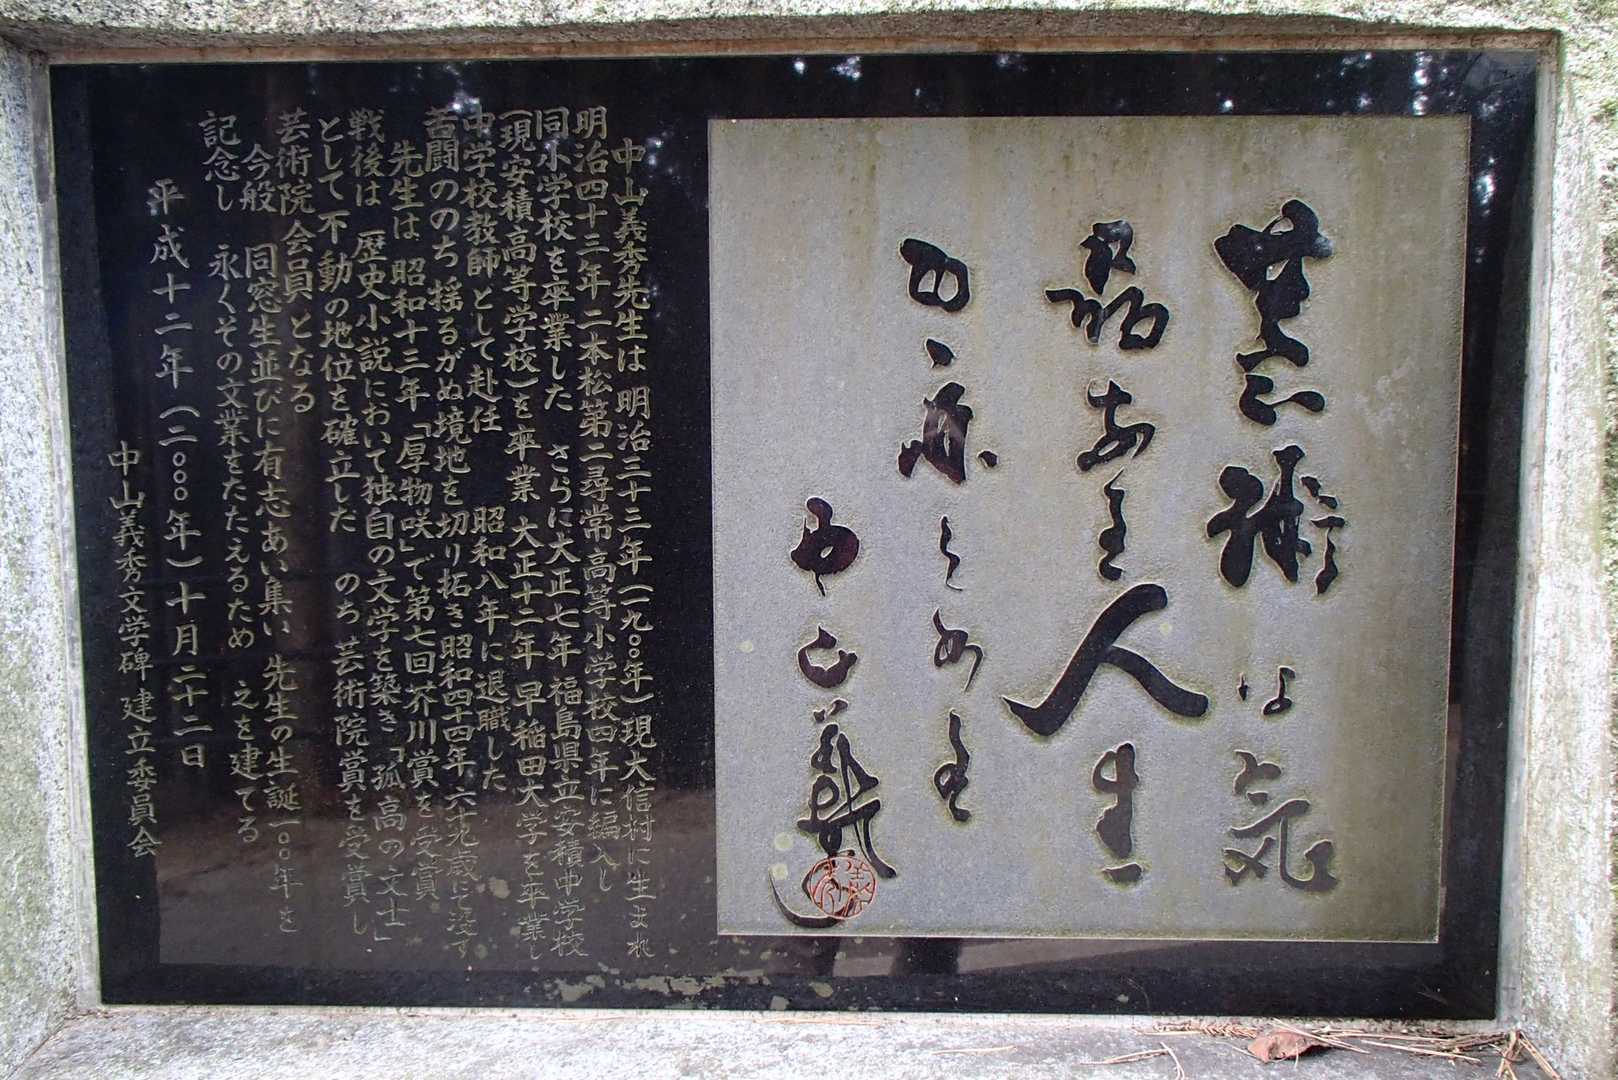 芸術は気
品ある人生
中山義秀
中山義秀先生は 明治三十三年(一九〇〇年)現大信村に生まれ
明治四十三年二本松第二尋常高等小学校四年に編入し
同小学校を卒業した さらに大正七年福島県立安積中学校
(現安積高等学校)を卒業 大正十二年早稲田大学を卒業し
中学校教師として赴任 昭和八年に退職した
苦闘ののち揺るがぬ境地を切り拓き昭和四十四年六十九歳にて没す
先生は昭和十三年「厚物咲」で第七回芥川賞を受賞
戦後は歴史小説において独自の文学を築き「孤高の文士」
として不動の地位を確立した のち芸術院賞を受賞し
芸術院会員となる
今般 同窓生並びに有志あい集い 先生の生誕一〇〇年を
記念し 永くその文業をたたえるため 之を建てる
平成十二年(二〇〇〇年)十月二十二日
中山義秀文学碑建立委員会